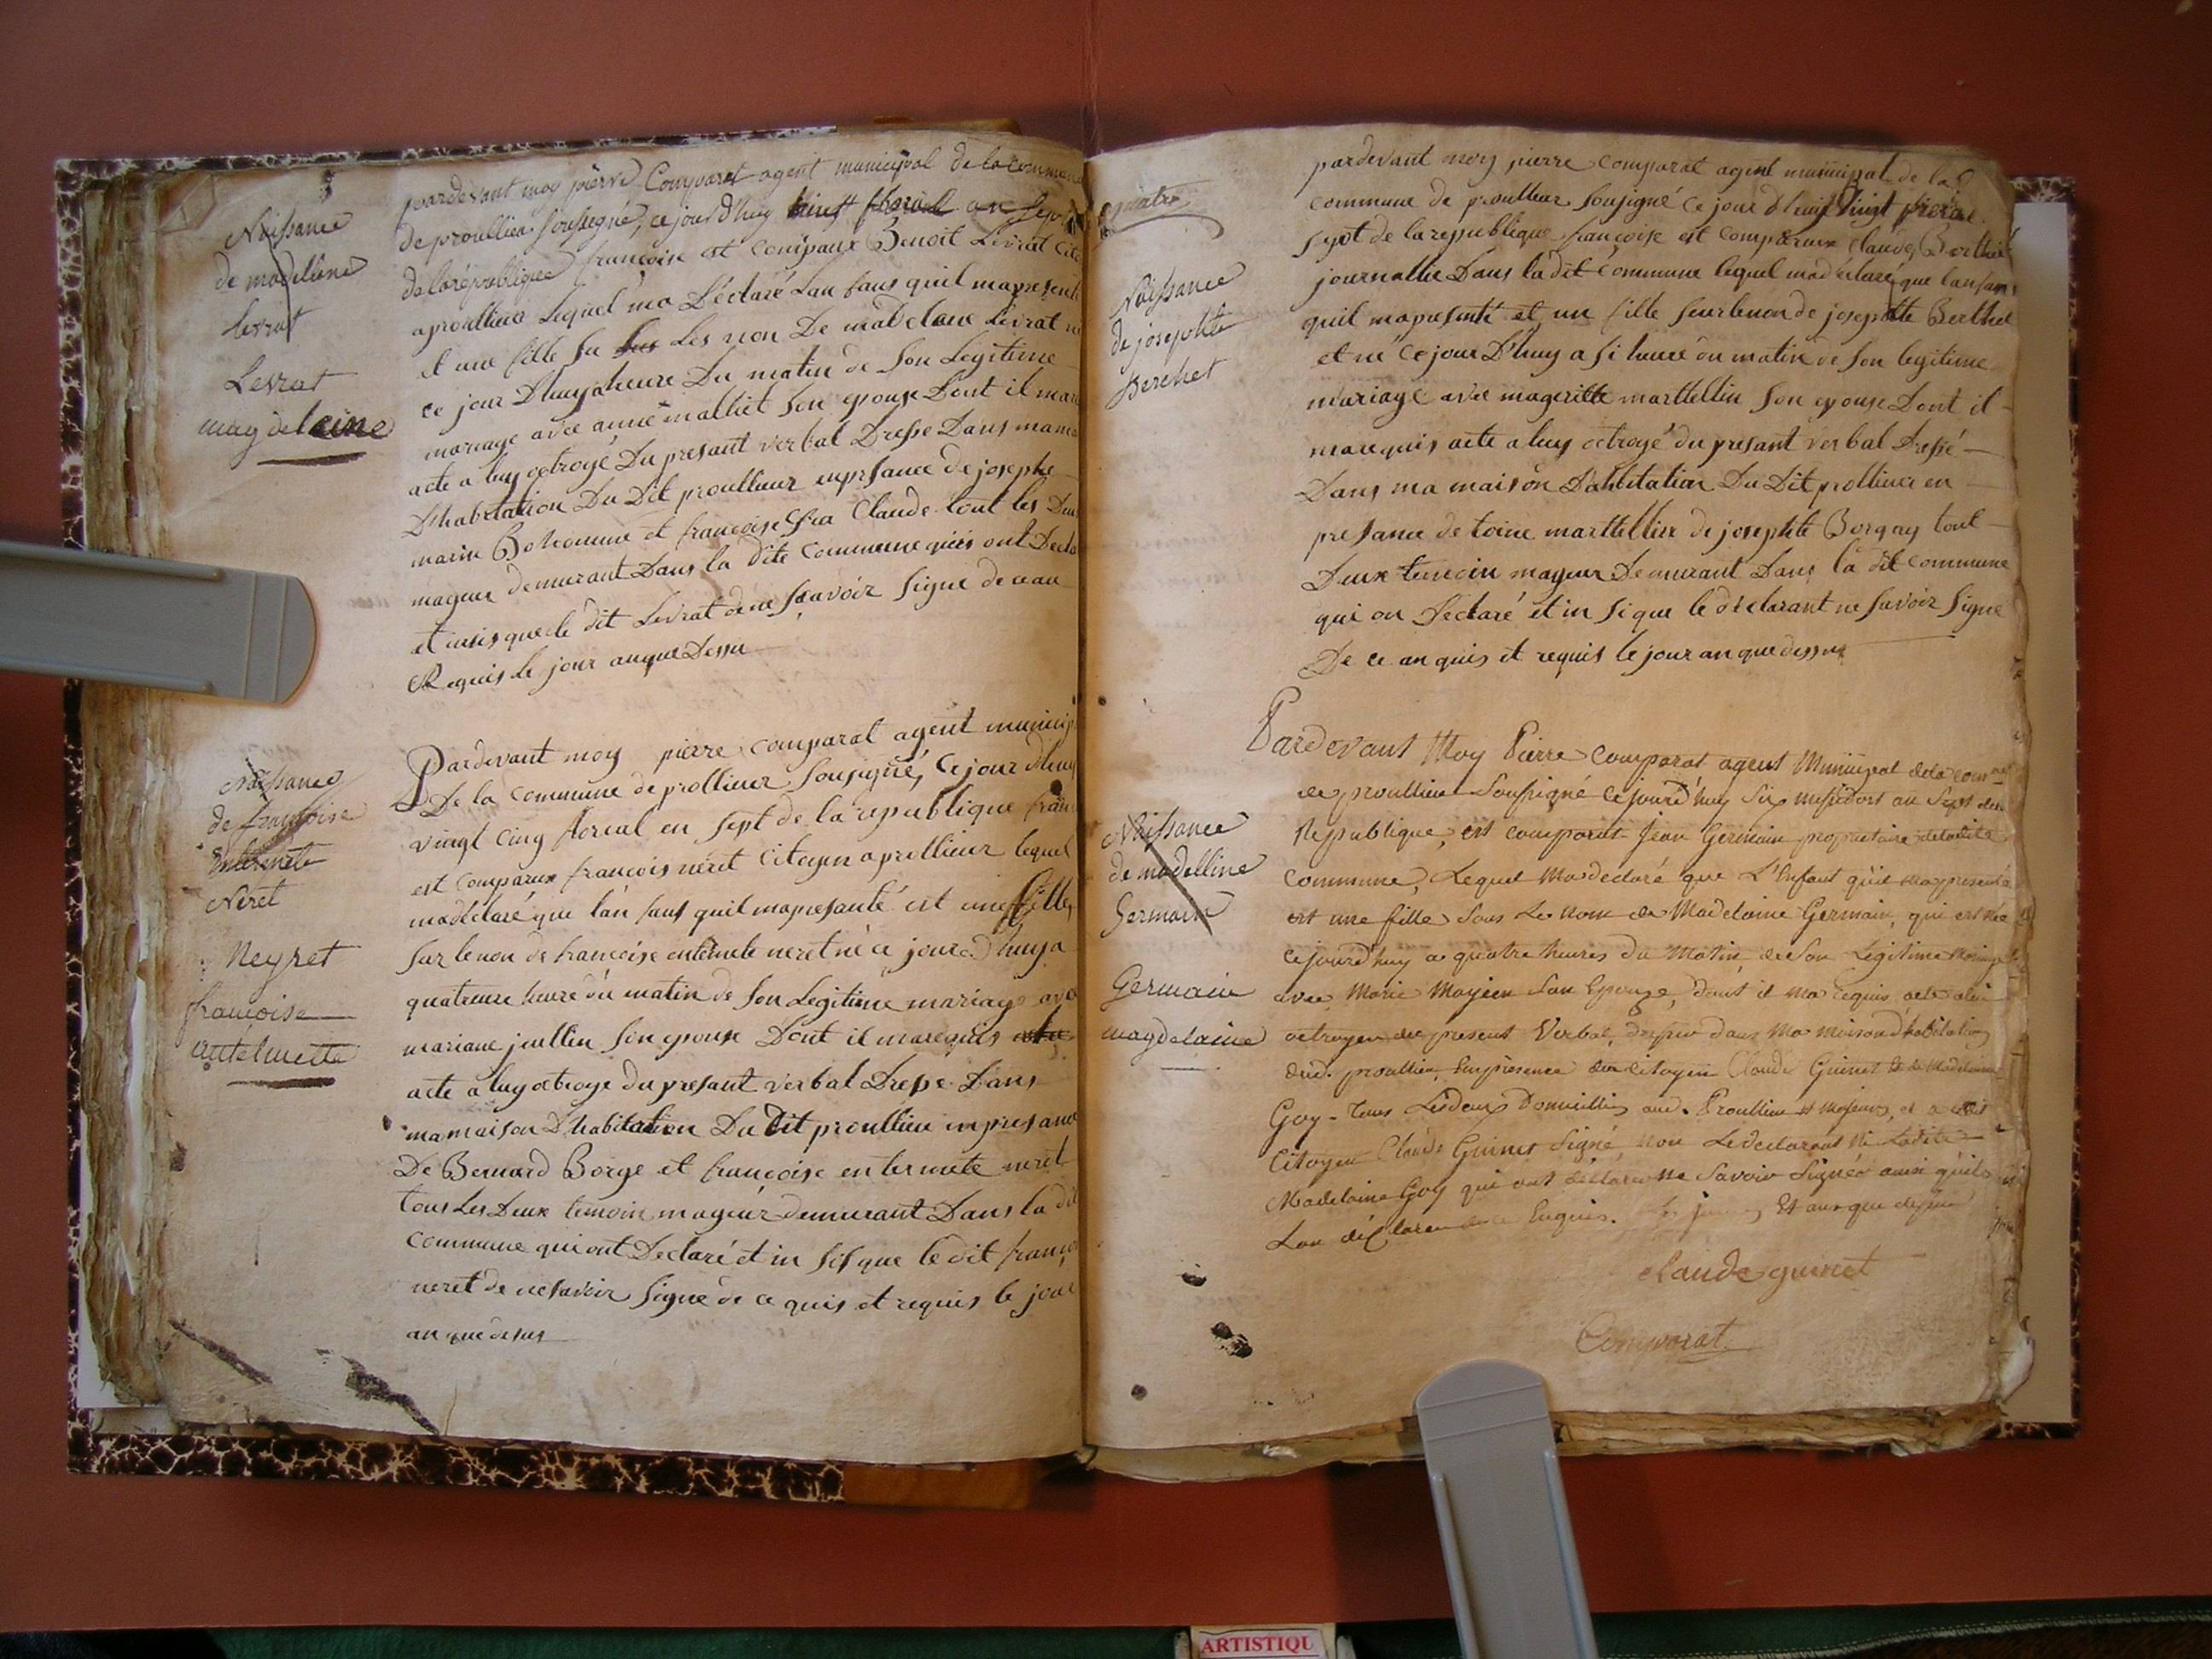 Naissance
de madelene
levrat
Levrat
magdeleine
pardevant moy pierre Comparat agent municipal de la commune
de proullieu sousigné, ce jour d'huy vingt floreal an sept
de la republique françoise est comparux Benoit Levrat
a proullieu lequel ma Déclaré lan fans quil ma presenté
et une fille su les non De madelene Levrat né
ce jour D'huy a heure Du matin de son Legitime
mariage avec anne malliet son epouse Dont il ma
acte a luy octroyé Du presant verbal Dresse Dans ma
D'habitation Du Dit proullieur en presance de josephe
marin Bohomme et françoise Claude tout les Deux
mageur demeurant Dans la dite Commune quis ont Declaré
et insis que le dit Levrat de ne sçavoir signe de ce an
Requis le jour an que Dessu
Naissance
de françoise
entermete
Néret
Neyret
françoise
antelmette
Pardevant moy pierre comparat agent municip
De la Commune de prollieur sousigné, Ce jour d'huy
vingt cinq floreal en sept de la republique fran
est comparux françois neret Citoyen a prollieur lequel
ma déclaré que lan fans quil ma presanté est une fille
sur le non de francoise entermete neret né ce jour d'huy a
quatreure heure du matin de son Legitime mariage avec
mariane jeullin son epouse Dont il ma requis
acte a luy octroye du presant verbal Dresse Dans
ma maison D'habitation Du Dit proullieu in presance
De Bernard Borge et françoise entermete neret
tous les Deux temoin mageur demeurant Dans la dit
Commune qui ont Declaré et in sis que le dit franço
neret de ne savoir signe de ce quis et requis le jour
an que desus
quatre
Naissance
de josephte
Berchet
pardevant moy pierre comparat agent municipal de la
commune de proullieur sousigné ce jour d'huy vingt
sept de la republique françoise est comparux Claude Berthet
journallie Dans la dit commune lequel ma déclaré que lanfans
quil ma presenté et un fille sur le non de josephte Berthet
et né ce jour D'huy a si heure du matin de son legitime
mariage avec mageritte marttellin son epouse Dont il
ma requis acte a luy octroyé du presant verbal Dressé
Dans ma maison D'abitation Du Dit prollieur en
presance de toine marttellin de josephte Borgay tout
Deux temoin mageur Demeurant Dans la dit commune
qui on Déclaré et in si que le déclarant ne savoir signe
De ce an quis et requis le jour an que dessus
Naissance
de madelline
Germain
Germain
magdelaine
Pardevant Moy Pierre Comparat agent Municipal de la com
de proullieu Soussigné cejourd'huy Six messidor an Sept de la
Republique, est comparut Jean Germain propriétaire de ladite
Commune, Lequel Ma déclaré que L'Enfant qu'il ma presenté
est une fille Sous Le Nom de Madelaine Germain, qui est née
cejourd'huy a quatre heures du Matin, de Son Légitime Mariage
avec Marie Moyien Son Epouze, dont il Ma requis acte a lui
octroyer du present Verbal, dressé dans Ma Maison d'habitation
dud. proullieu, Enprésence du Citoyen Claude Guinet Et de Madelaine
Goy - Tous Lesdeux Domicilliés aud. Proullieu et Majeurs, et a Ledit
Citoyen Claude Guinet Signé, Non Ledeclarant Ni Ladite
Madelaine Goy qui ont déclaré ne Savoir Signer ainsi qu'ils
Lon déclaré Enquis. Les jour Et an que dessus
Claude guinet
Comparat
ARTISTIQU